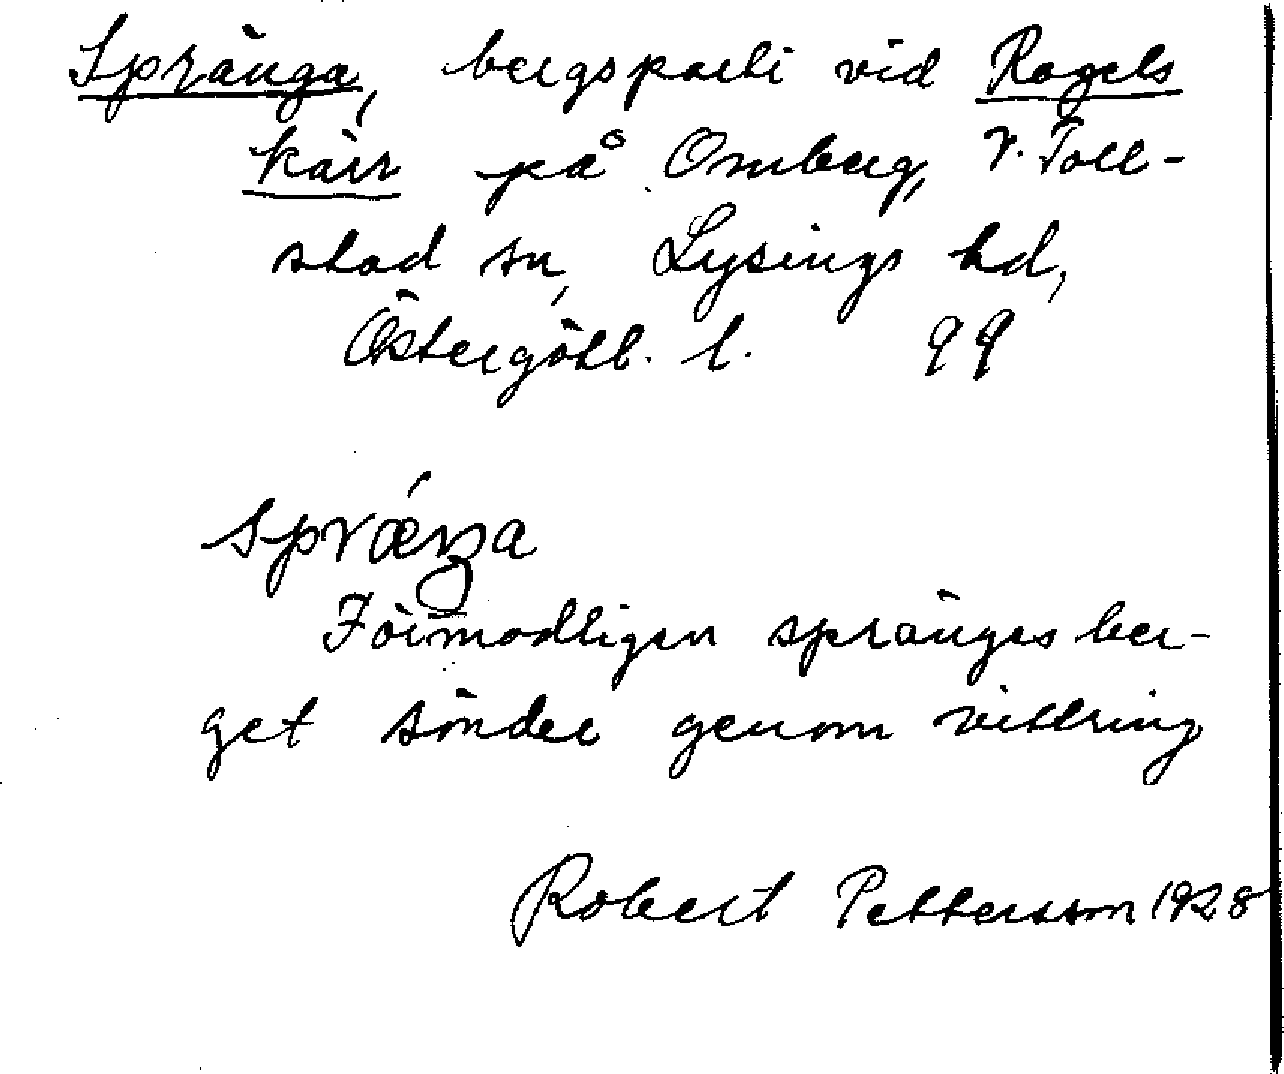 Spränga, bergsparti vid Rogels
kärr på Omberg, V. Toll-
stad sn, Lysings hd,
Östergötl. l. 99
sprǽŋa
Förmodligen spränges ber-
get sönder genom vittring
Robert Pettersson 1928